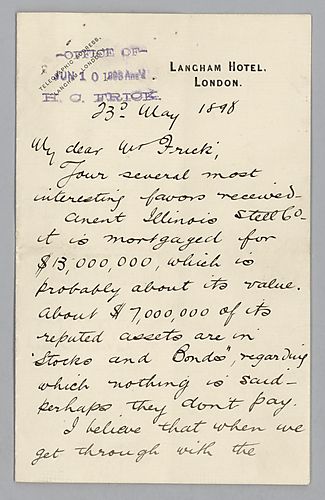 TELEGRAPHIC ADDRESS,
LANGHAM, LONDON.
OFFICE OF
JUN 10 1898 Ans'd
H. C. FRICK.
LANGHAM HOTEL.
LONDON.
23d May 1898
My dear Mr Frick,
Your several most
interesting favors received—
Anent Illinois Steel Co—
it is mortgaged for
$13,000,000, which is
probably about its value.
About $7,000,000 of its
reputed assets are in
"Stocks and Bonds", regarding
which nothing is said—
perhaps they don't pay.
I believe that when we
get through with the